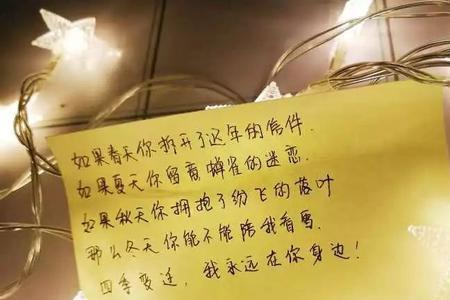 如果春天你拆开了近年的信件.
如果夏天你留意蝉雀的迷恋.
如果秋天你拥抱了纷飞的落叶
那么冬天你能不能陪我看雪.
四季变迁，我永远在你身边!